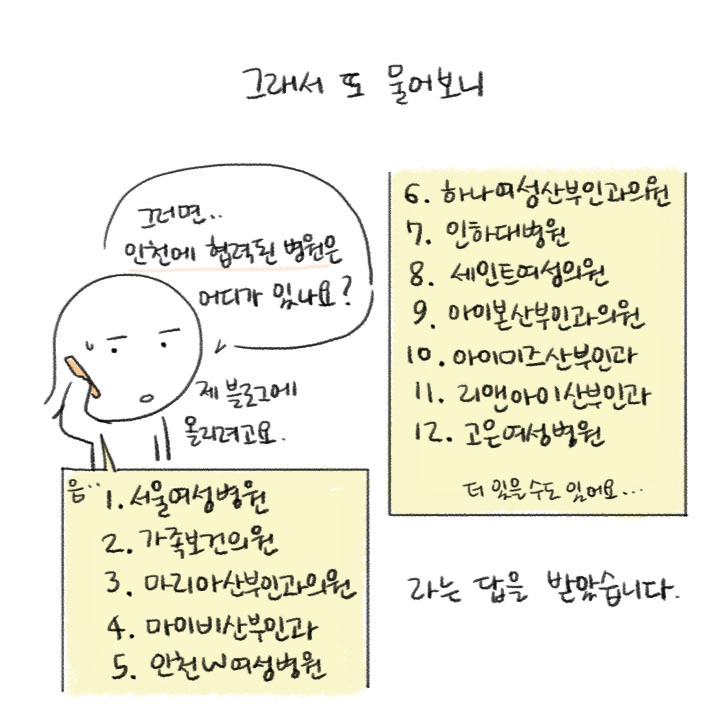 그래서 또 물어보니
그러면..
인천에 협력된 병원은
어디가 있나요?
제 블로그에
올리려고요.
음.. 1. 서울여성병원
2. 가족보건의원
3. 마리아산부인과의원
4. 마이비산부인과
5. 인천W여성병원
6. 하나여성산부인과의원
7. 인하대병원
8. 세인트여성의원
9. 아이본산부인과의원
10. 아이미즈산부인과
11. 리앤아이산부인과
12. 고은여성병원
더 있을 수도 있어요...
라는 답을 받았습니다.